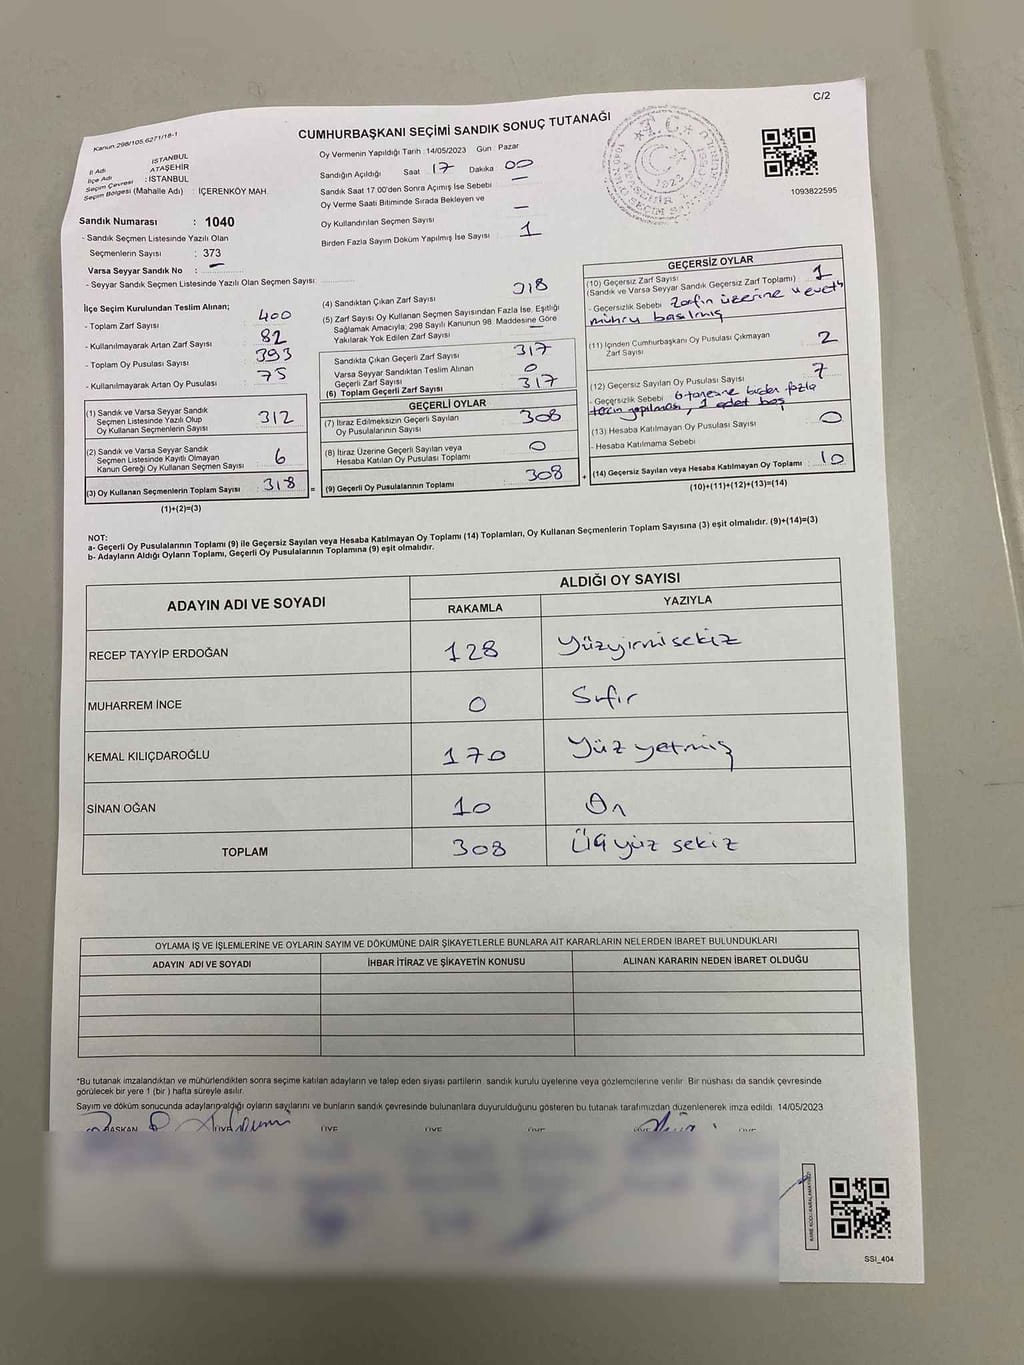 C/2
Kanun.298/105,6271/18-1
CUMHURBAŞKANI SEÇİMİ SANDIK SONUÇ TUTANAĞI
İl Adı : İSTANBUL
İlçe Adı ATAŞEHİR
Seçim Çevresi : İSTANBUL
Seçim Bölgesi (Mahalle Adı) : İÇERENKÖY MAH.
Sandık Numarası : 1040
- Sandık Seçmen Listesinde Yazılı Olan
Seçmenlerin Sayısı : 373
Varsa Seyyar Sandık No : –
- Seyyar Sandık Seçmen Listesinde Yazılı Olan Seçmen Sayısı
Oy Vermenin Yapıldığı Tarih :14/05/2023 Gün : Pazar
Sandığın Açıldığı Saat 17 Dakika 00
Sandık Saat 17.00'den Sonra Açımış İse Sebebi –
Oy Verme Saati Bitiminde Sırada Bekleyen ve
Oy Kullandırılan Seçmen Sayısı –
Birden Fazla Sayım Döküm Yapılmış İse Sayısı 1
1093822595
İlçe Seçim Kurulundan Teslim Alınan;
- Toplam Zarf Sayısı 400
- Kullanılmayarak Artan Zarf Sayısı 82
- Toplam Oy Pusulası Sayısı 393
- Kullanılmayarak Artan Oy Pusulası 75
(1) Sandık ve Varsa Seyyar Sandık
Seçmen Listesinde Yazılı Olup
Oy Kullanan Seçmenlerin Sayısı 312
(2) Sandık ve Varsa Seyyar Sandık
Seçmen Listesinde Kayıtlı Olmayan
Kanun Gereği Oy Kullanan Seçmen Sayısı 6
(3) Oy Kullanan Seçmenlerin Toplam Sayısı : 318 =
(1)+(2)=(3)
(4) Sandıktan Çıkan Zarf Sayısı 318
(5) Zarf Sayısı Oy Kullanan Seçmen Sayısından Fazla İse, Eşitliği
Sağlamak Amacıyla; 298 Sayılı Kanunun 98. Maddesine Göre
Yakılarak Yok Edilen Zarf Sayısı –
Sandıkta Çıkan Geçerli Zarf Sayısı 317
Varsa Seyyar Sandıktan Teslim Alınan
Geçerli Zarf Sayısı 0
(6) Toplam Geçerli Zarf Sayısı 317
GEÇERLİ OYLAR
(7) İtiraz Edilmeksizin Geçerli Sayılan
Oy Pusulalarının Sayısı 308
(8) İtiraz Üzerine Geçerli Sayılan veya
Hesaba Katılan Oy Pusulası Toplamı 0
(9) Geçerli Oy Pusulalarının Toplamı 308 +
GEÇERSİZ OYLAR
(10) Geçersiz Zarf Sayısı 1
(Sandık ve Varsa Seyyar Sandık Geçersiz Zarf Toplamı)
- Geçersizlik Sebebi zarfın üzerine "evet"
mührü basılmış
(11) İçinden Cumhurbaşkanı Oy Pusulası Çıkmayan
Zarf Sayısı 2
(12) Geçersiz Sayılan Oy Pusulası Sayısı 7
- Geçersizlik Sebebi 6 tanesine birden fazla
tercih yapılması, 1 adet boş
(13) Hesaba Katılmayan Oy Pusulası Sayısı 0
- Hesaba Katılmama Sebebi
(14) Geçersiz Sayılan veya Hesaba Katılmayan Oy Toplamı 10
(10)+(11)+(12)+(13)=(14)
NOT:
a- Geçerli Oy Pusulalarının Toplamı (9) ile Geçersiz Sayılan veya Hesaba Katılmayan Oy Toplamı (14) Toplamları, Oy Kullanan Seçmenlerin Toplam Sayısına (3) eşit olmalıdır. (9)+(14)=(3)
b- Adayların Aldığı Oyların Toplamı, Geçerli Oy Pusulalarının Toplamına (9) eşit olmalıdır.
ADAYIN ADI VE SOYADI
ALDIĞI OY SAYISI
RAKAMLA YAZIYLA
RECEP TAYYİP ERDOĞAN 128 Yüzyirmisekiz
MUHARREM İNCE 0 Sıfır
KEMAL KILIÇDAROĞLU 170 Yüz yetmiş
SİNAN OĞAN 10 On
TOPLAM 308 Üçyüz sekiz
OYLAMA İŞ VE İŞLEMLERİNE VE OYLARIN SAYIM VE DÖKÜMÜNE DAİR ŞİKAYETLERLE BUNLARA AİT KARARLARIN NELERDEN İBARET BULUNDUKLARI
ADAYIN ADI VE SOYADI İHBAR İTİRAZ VE ŞİKAYETİN KONUSU ALINAN KARARIN NEDEN İBARET OLDUĞU
*Bu tutanak imzalandıktan ve mühürlendikten sonra seçime katılan adayların ve talep eden siyasi partilerin, sandık kurulu üyelerine veya gözlemcilerine verilir. Bir nüshası da sandık çevresinde
görülecek bir yere 1 (bir ) hafta süreyle asılır.
Sayım ve döküm sonucunda adayların aldığı oyların sayılarını ve bunların sandık çevresinde bulunanlara duyurulduğunu gösteren bu tutanak tarafımızdan düzenlenerek imza edildi. 14/05/2023
BAŞKAN ÜYE ÜYE ÜYE ÜYE
SSI_404